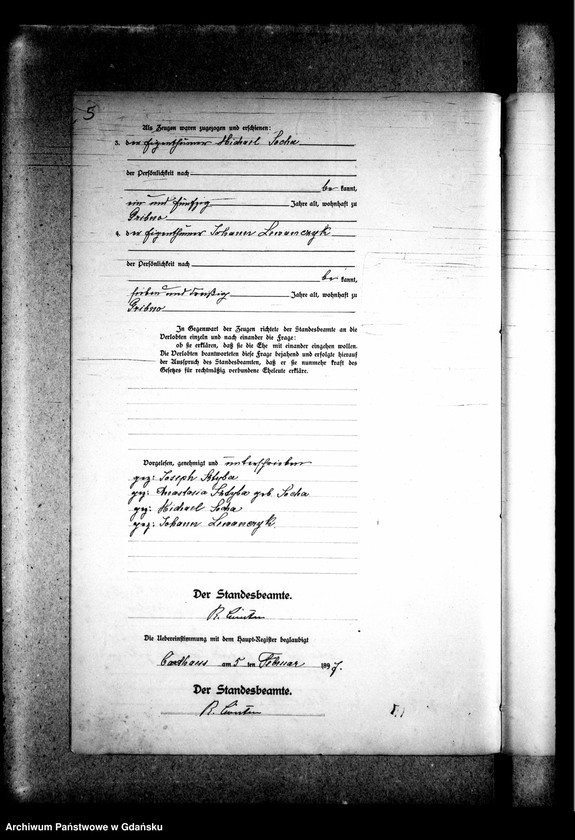 5
Als Zeugen waren zugezogen und erschienen:
3. der Eigenthümer Michael Socha
der Persönlichkeit nach
be kannt,
ein und fünfzig Jahre alt, wohnhaft zu
Gribno
4. der Eigenthümer Johann Lewanczyk
der Persönlichkeit nach
be kannt,
sieben und dreißig Jahre alt, wohnhaft zu
Gribno
In Gegenwart der Zeugen richtete der Standesbeamte an die
Verlobten einzeln und nach einander die Frage:
ob sie erklären, daß sie die Ehe mit einander eingehen wollen.
Die Verlobten beantworteten diese Frage bejahend und erfolgte hierauf
der Ausspruch des Standesbeamten, daß er sie nunmehr kraft des
Gesetzes für rechtmäßig verbundene Eheleute erkläre.
Vorgelesen, genehmigt und unterschrieben
gez: Joseph Sztyba
gez: Anastasia Sztyba geb. Socha
gez: Michael Socha
gez: Johann Lewanczyk
Der Standesbeamte.
R.
Die Uebereinstimmung mit dem Haupt-Register beglaubigt
Carthaus am 5 ten Februar 1897.
Der Standesbeamte.
R.
Archiwum Państwowe w Gdańsku